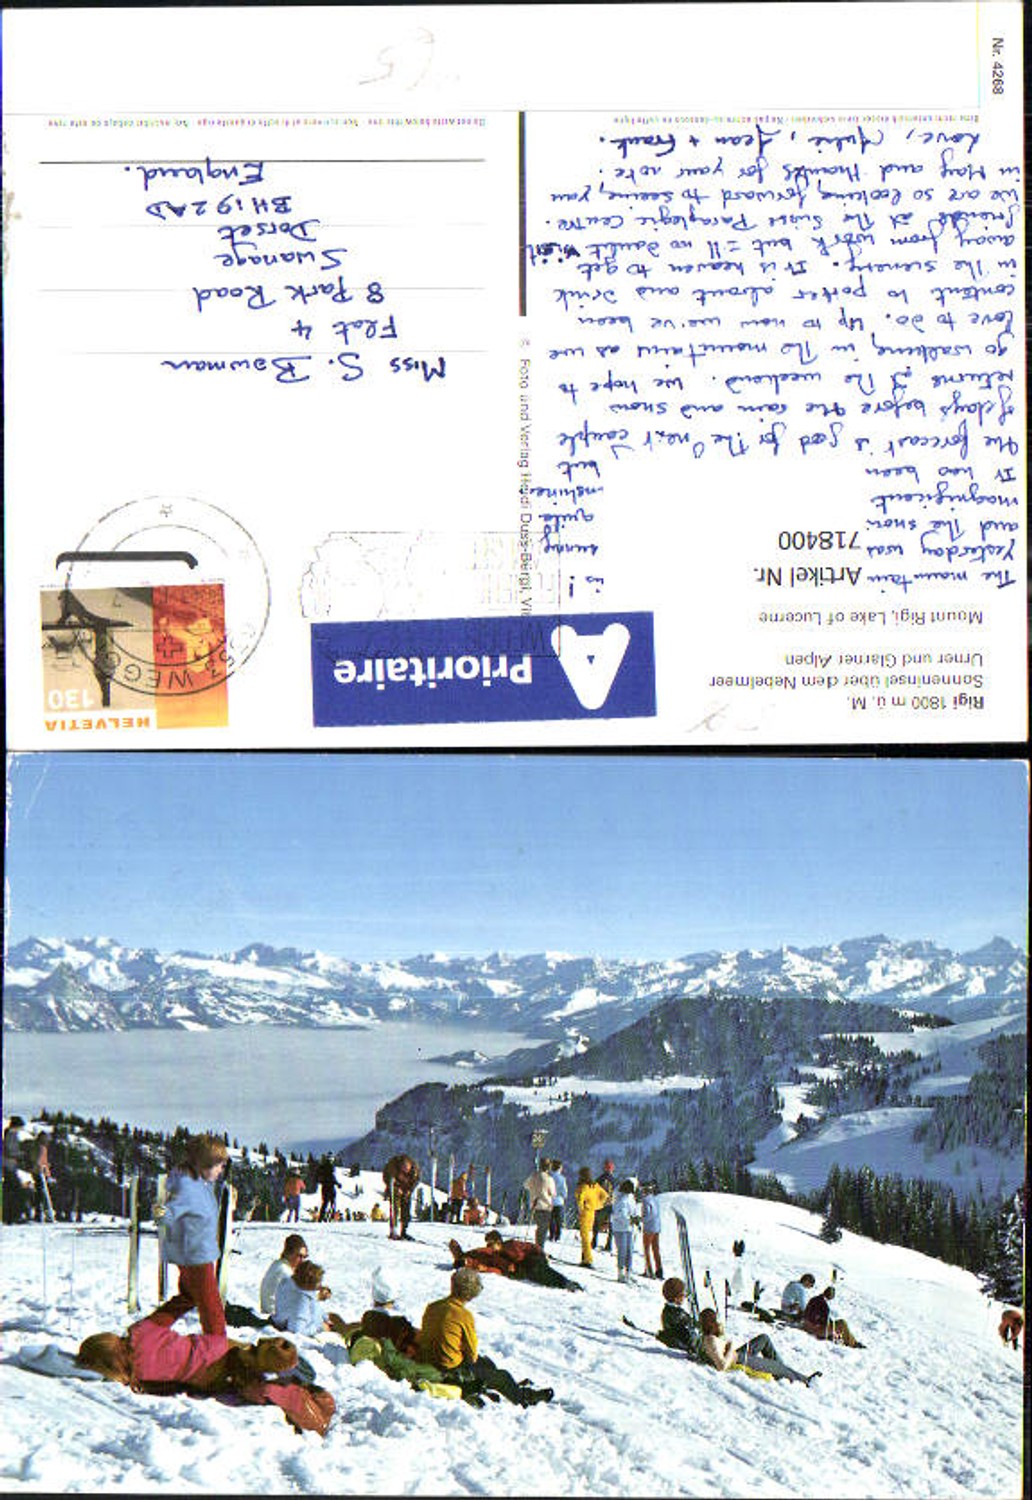 Rigi 1800 m ü. M.
Sonneninsel über dem Nebelmeer
Urner und Glarner Alpen
Mount Rigi, Lake of Lucerne
Artikel Nr.
718400
The mountain is !
Yesterday was sunny
and the snow quite
magnificent
It has been but
the forecast is good for the next couple
of days before the rain and snow
returns at the weekend. We hope to
go walking in the mountains as we
love to do. Up to now we've been
content to potter about and drink
in the scenery. It is heaven to get
away from work but I'll no doubt visit
friends at the Swiss Paraplegic Centre.
We are so looking forward to seeing you
in May and thanks for your note.
Love, Julie, Jean + Frank.
A Prioritaire
HELVETIA
130
6353 WEGGIS
Miss S. Bowman
Flat 4
8 Park Road
Swanage
Dorset
BH19 2AD
England.
© Foto und Verlag Heidi Duss-Bürgi, Vi
Nr. 4268